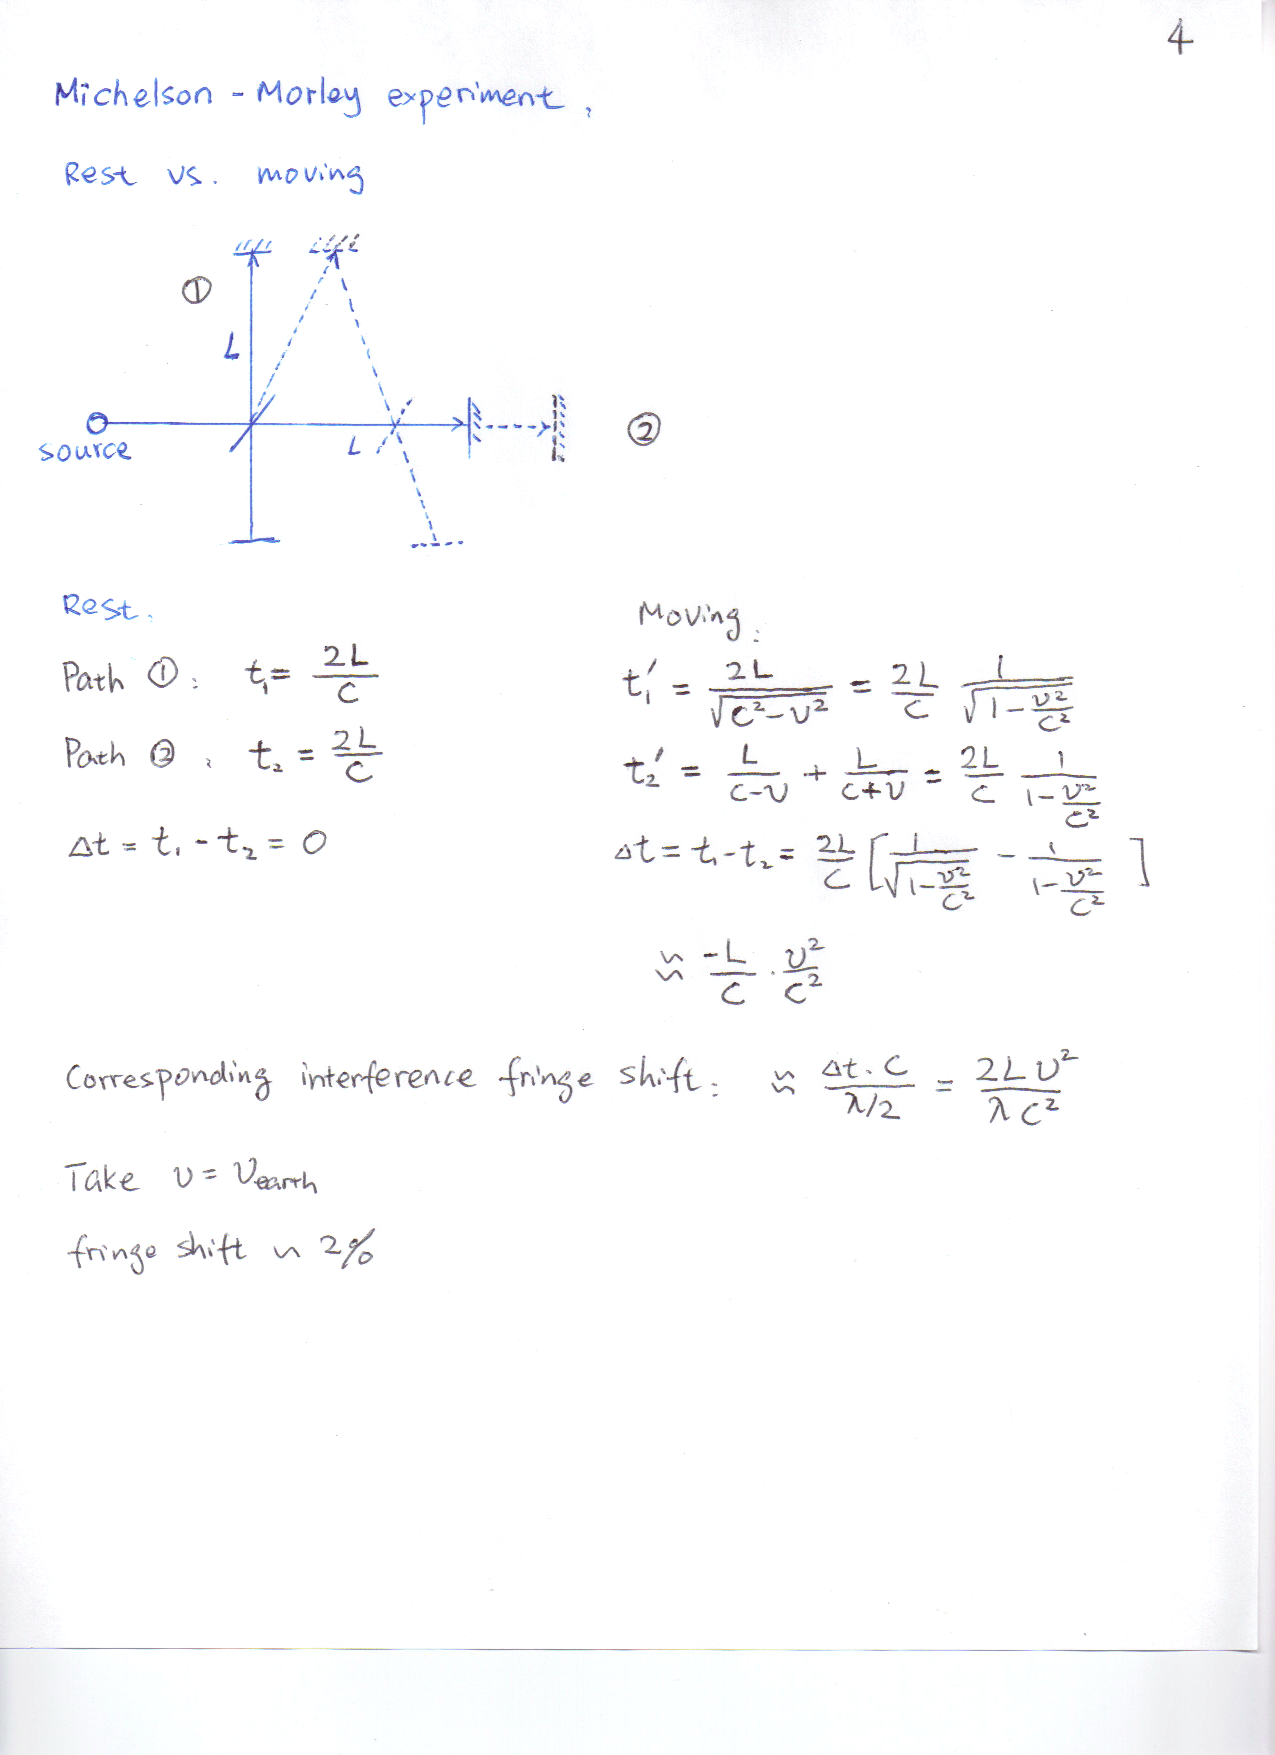 4
Michelson - Morley experiment,
Rest vs. moving
①
L
source
L
②
Rest.
Path ①: t₁ = 2L/C
Path ②, t₂ = 2L/C
Δt = t₁ - t₂ = 0
Moving:
t₁' = 2L/√(C²-υ²) = 2L/C 1/√(1-υ²/C²)
t₂' = L/(C-υ) + L/(C+υ) = 2L/C 1/(1-υ²/C²)
Δt = t₁ - t₂ = 2L/C [1/√(1-υ²/C²) - 1/(1-υ²/C²)]
≈ -L/C · υ²/C²
Corresponding interference fringe shift: ≈ Δt·C/(λ/2) = 2Lυ²/(λC²)
Take υ = υearth
fringe shift ~ 2%